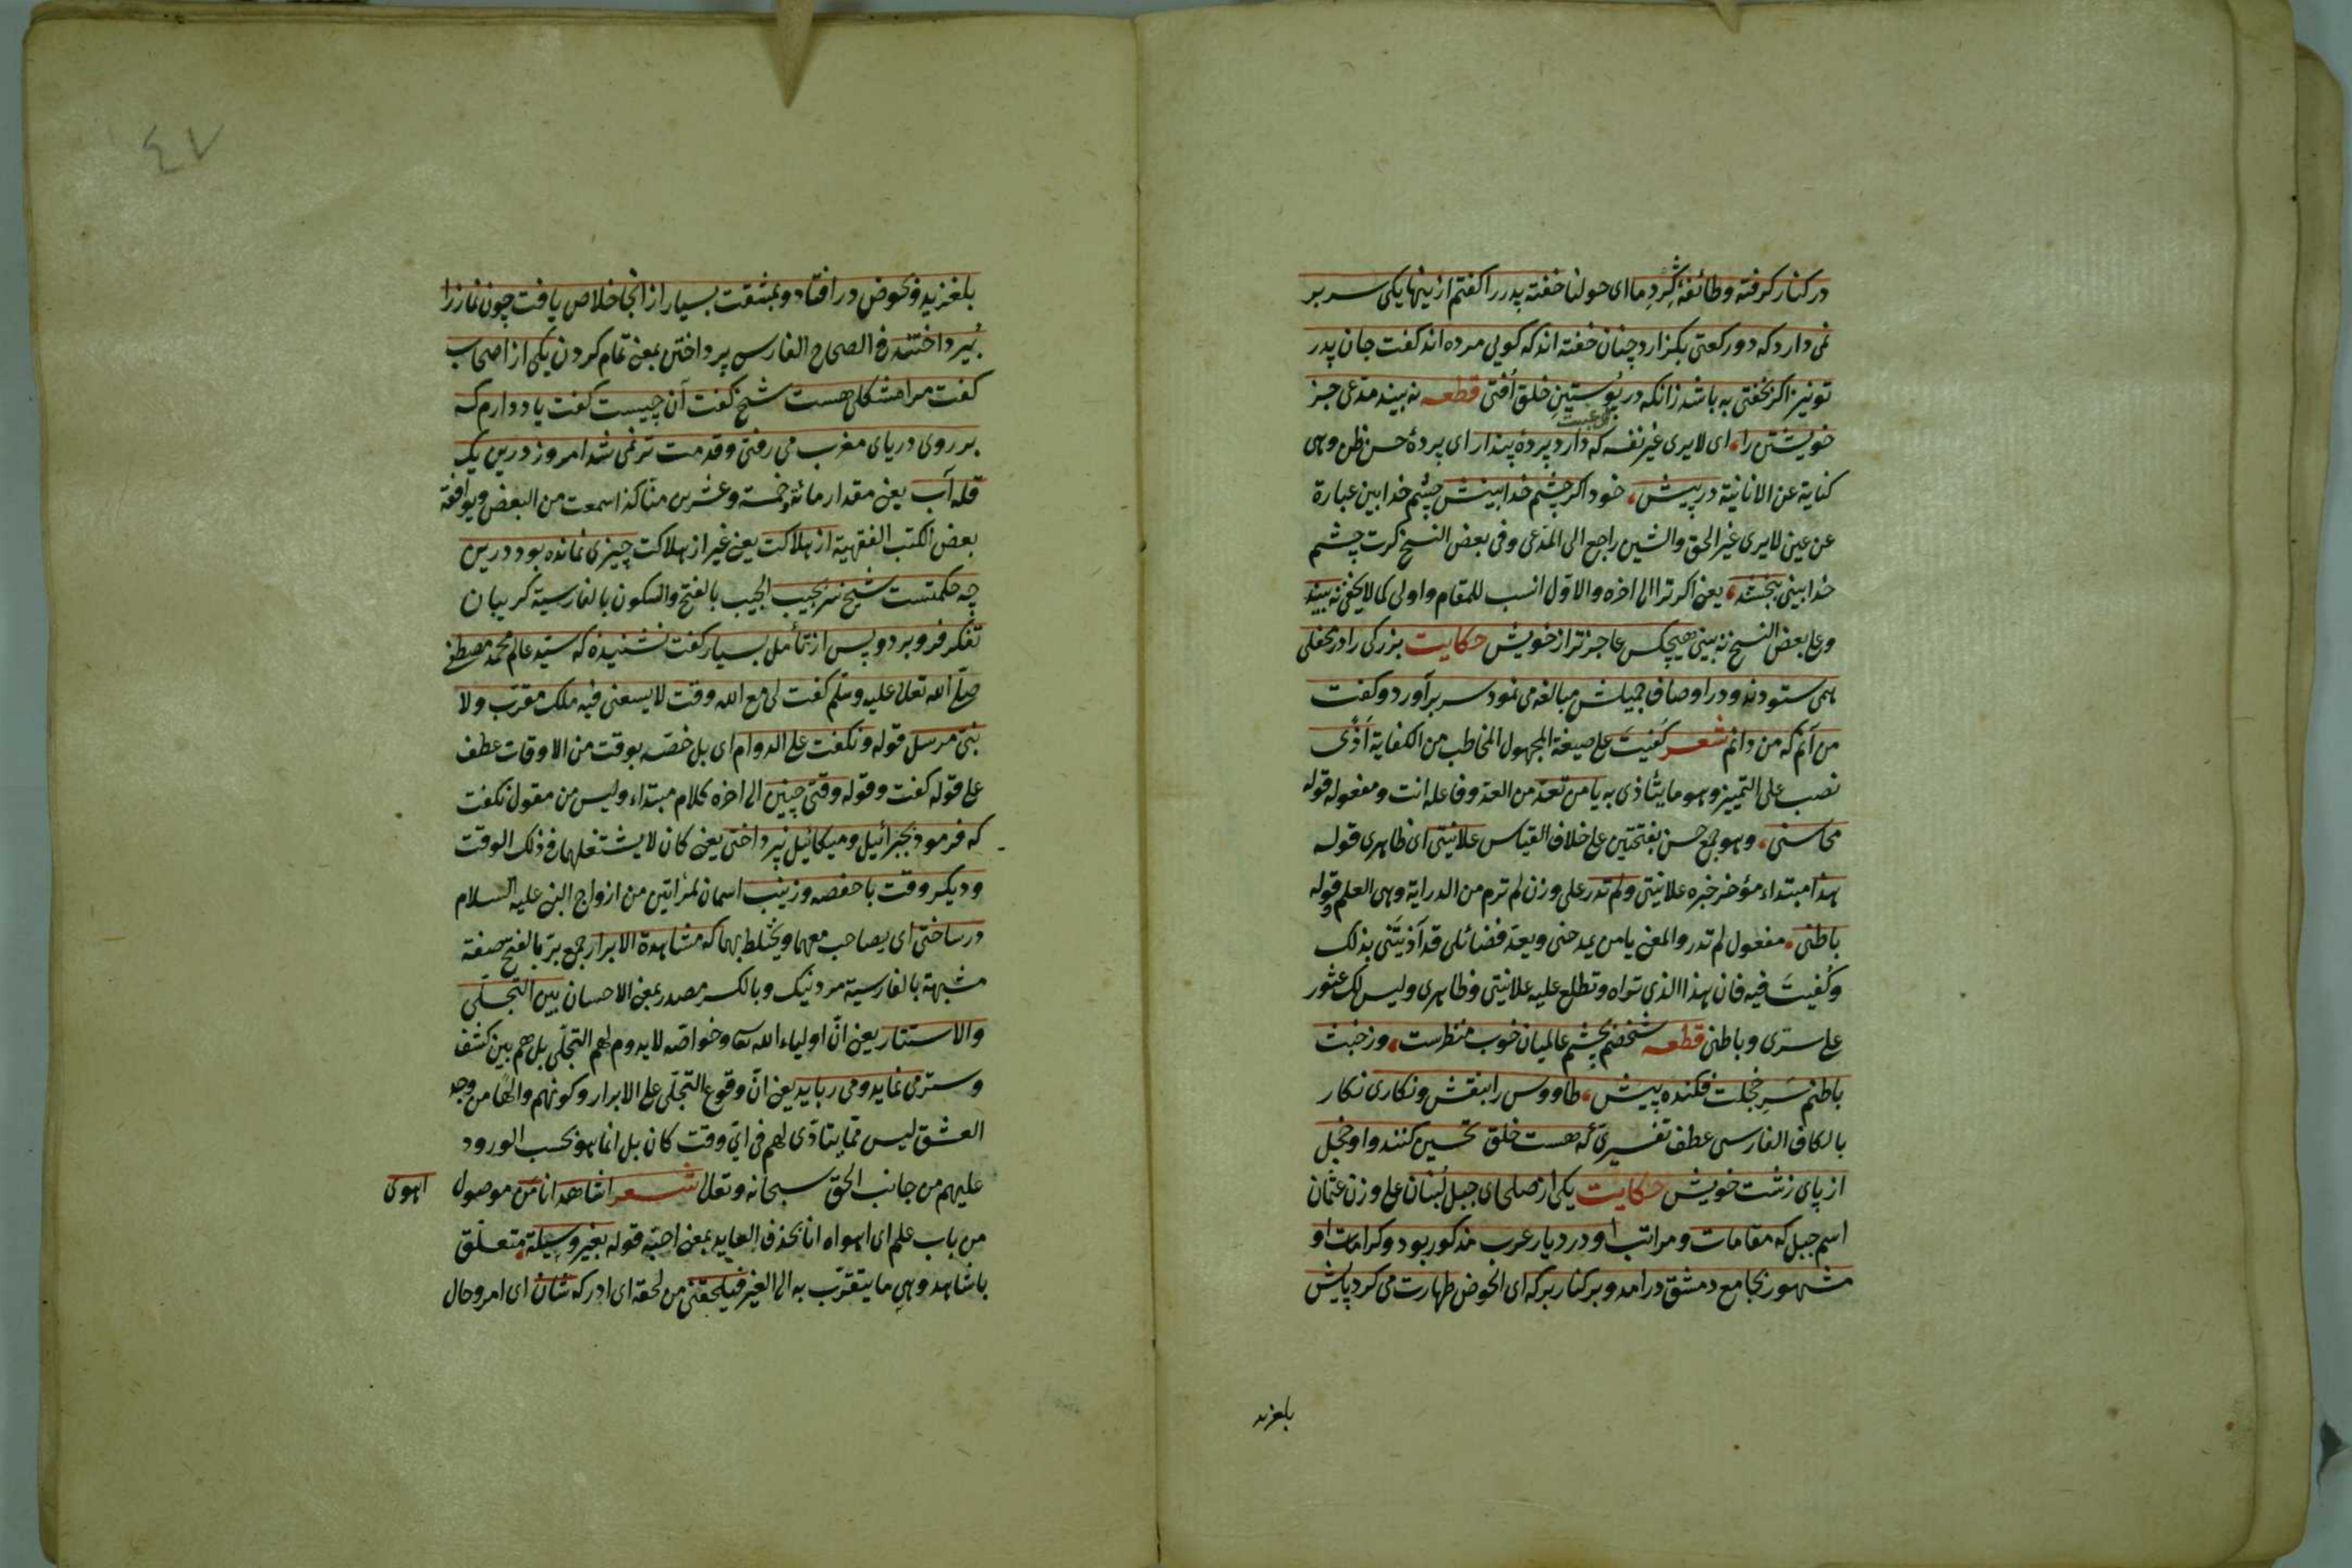 در کنار کرفته وطائفهٔ کِرْدِ ما ای حولنا خفته پدر را کفتم ازینها یکی سر بر
نمی دارد که دو رکعتی بکزارد چنان خفته اند که کویی مرده اند کفت جان پدر
تو نیز اکر بخفتی به باشد زانکه در پوستینِ خلق اُفتی قطعه نه بیند مدعی جز
خویشتن را، ای لا یری غیر نفسه که دارد پردهٔ پندار ای پردهٔ حسن ظن وهی
کنایة عن الانانیة در پیش، خود اکر چشم خدا بینش چشم خدا بین عبارة
عن عین لا یری غیر الحق والشین راجع الی المدعی وفی بعض النسخ کرت چشم
خدا بینی ببخشند، یعنی اکر ترا الی اخره والاول انسب للمقام واولی کما لا یخفی نه بیند
وعلی بعض النسخ نه بینی هیچکس عاجزتر از خویش حکایت بزرکی را در محفلی
همی ستودند ودر اوصاف جمیلش مبالغه می نمود سر برآورد وکفت
من آنم که من دانم شعر کُفیتَ علی صیغة المجهول المخاطب من الکفایة اَذًی
نصب علی التمییز وهو ما یتأذی به یا من تعد من العد وفاعله انت ومفعوله قوله
محاسنی، وهو جمع حسن بفتحتین علی خلاف القیاس علانیتی ای ظاهری قوله
هذا مبتداء مؤخر خبره علانیتی ولم تدر علی وزن لم ترم من الدرایة وهی العلم وقوله
باطنی، مفعول لم تدر والمعنی یا من یمدحنی ویعد فضائلی قد آذیتنی بذلک
وکُفیتَ فیه فان هذا الذی تراه وتطلع علیه علانیتی وظاهری ولیس لک عثور
علی سری وباطنی قطعه شخصم بچشم عالمیان خوب منظرست، وز خبث
باطنم سَرِ خجلت فکنده پیش، طاووس را بنقش ونکاری نکار
بالکاف الفارسی عطف تفسیری که هست خلق تحسین کنند واو خجل
از پای زشت خویش حکایت یکی از صلحای جبل لُبنان علی وزن عثمان
اسم جبل که مقامات ومراتب او در دیار عرب مذکور بود وکرامات او
مشهور بجامع دمشق درامد وبر کنار برکه ای الحوض طهارت می کرد پایش
بلغزید
٤٧
بلغزید وبحوض در افتاد وبمشقت بسیار از انجا خلاص یافت چون نماز را
بپرداختند فی الصحاح الفارس پرداختن بمعنی تمام کردن یکی از اصحاب
کفت مرا مشکلی هست شیخ کفت آن چیست کفت یاد دارم که
بر روی دریای مغرب می رفتی وقدمت تر نمی شد امروز درین یک
قله آب یعنی مقدار مائة وخمسة وعشرین منا کذا سمعت من البعض ویوافقه
بعض الکتب الفقهیة از هلاکت یعنی غیر از هلاکت چیزی نمانده بود درین
چه حکمتست شیخ سر بجیب الجیب بالفتح والسکون بالفارسیة کریبان
تفکر فرو برد وپس از تأمل بسیار کفت نشنیدهٔ که سید عالم محمد مصطفی
صلی الله تعالی علیه وسلم کفت لی مع الله وقت لا یسعنی فیه ملک مقرب ولا
نبی مرسل قوله ونکفت علی الدوام ای بل خصه بوقت من الاوقات عطف
علی قوله کفت وقوله وقتی چنین الی اخره کلام مبتداء ولیس من مقول نکفت
که فرمود بجبرائیل ومیکائیل نپرداختی یعنی کان لا یشتغلهما فی ذلک الوقت
ودیکر وقت با حفصه وزینب اسمان لمرأتین من ازواج النبی علیه السلام
در ساختی ای یصاحب معهما ویختلط بهما که مشاهدة الابرار جمع بر بالفتح صفة
مشبهة بالفارسیة مرد نیک وبالکسر مصدر بمعنی الاحسان بین التجلّی
والاستتار یعنی انّ اولیاء الله وخواصّه لا یدوم لهم التجلّی بل هم بین کشف
وستر می نماید ومی رباید یعنی انّ وقوع التجلّی علی الابرار وکونهم والهًا من وجد
العشق لیس ممّا یتأدّی لهم فی ایّ وقت کان بل انما هو بحسب الورود
علیهم من جانب الحق سبحانه وتعالی شعر اشاهد انا من موصول اهوی
من باب علم ای اهواه انا بحذف العاید بمعنی احبّه قوله بغیر وسیلة، متعلّق
باشاهد وهی ما یتقرّب به الی الغیر فیلحقنی من لحقه ای ادرکه شان ای امر وحال